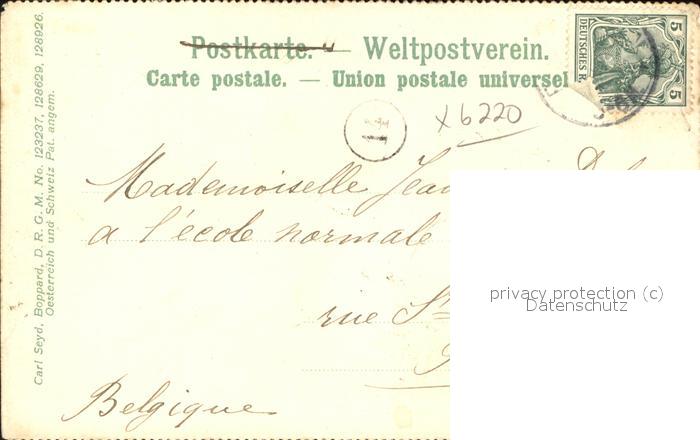 Postkarte. — Weltpostverein.
Carte postale. — Union postale universel
DEUTSCHES R.
5
5
14
x 6220
Mademoiselle
a l'école normale
rue St
Belgique
privacy protection (c)
Datenschutz
Carl Seyd, Boppard, D. R. G. M. No. 123237, 128629, 128926.
Oesterreich und Schweiz Pat. angem.